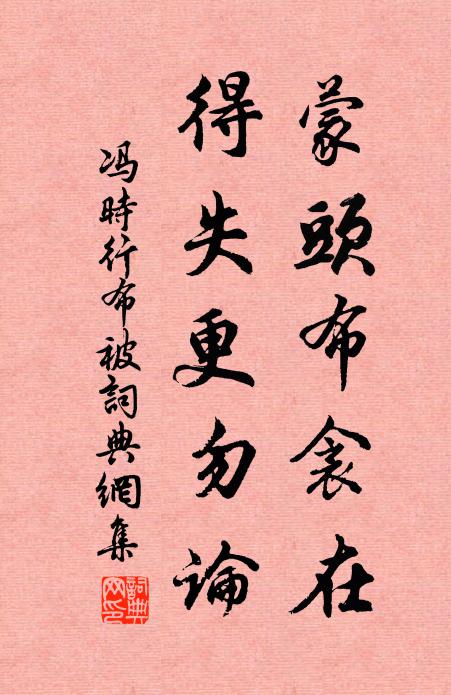 蒙頭布衾在
得失更勿論
冯時行布被詞典網集
詞典网印